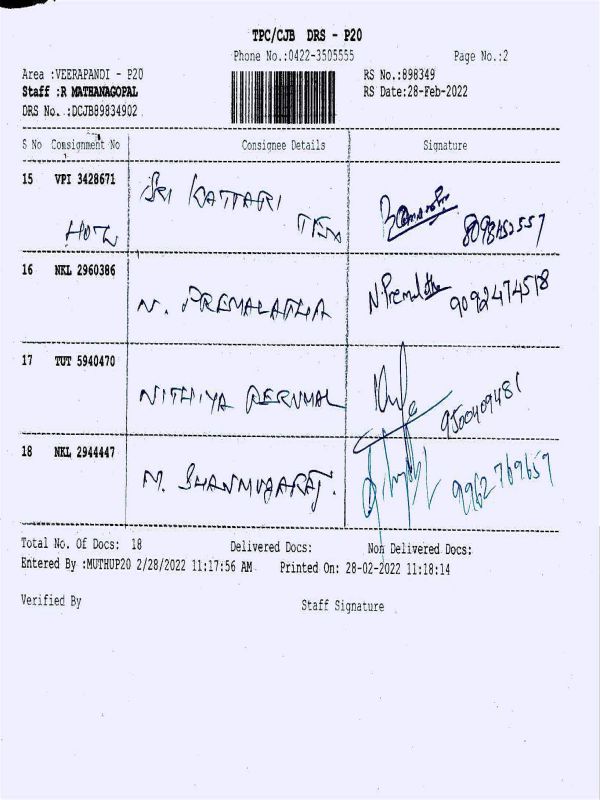 TPC/CJB DRS - P20
Phone No.:0422-3505555
Page No.:2
Area :VEERAPANDI - P20
RS No.:898349
Staff :R MATHANAGOPAL
RS Date:28-Feb-2022
DRS No. :DCJB89834902
S No Consignment No Consignee Details Signature
15 VPI 3428671 SRI KATTARI
TEX
16 NKL 2960386 N. PREMALATHA N.Premalatha 9092474518
17 TUT 5940470 NITHIYA PERUMAL 9500409481
18 NKL 2944447 M. SHANMUGARAJ. 9962769657
Total No. Of Docs: 18 Delivered Docs: Non Delivered Docs:
Entered By :MUTHUP20 2/28/2022 11:17:56 AM Printed On: 28-02-2022 11:18:14
Verified By Staff Signature